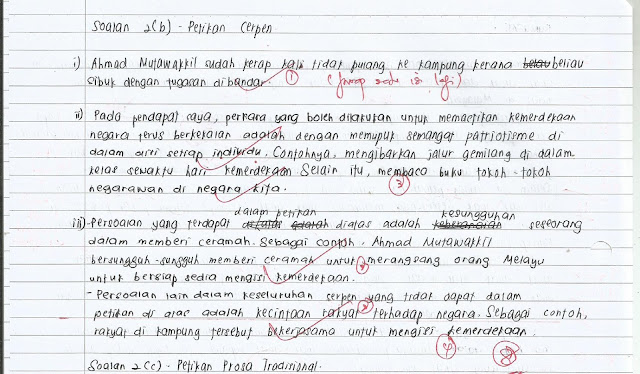 Soalan 2(b) - Petikan Cerpen
i) Ahmad Mutawakkil sudah kerap kali tidak pulang ke kampung kerana beliau
sibuk dengan tugasan di bandar. 1
ii) Pada pendapat saya, perkara yang boleh dilakukan untuk memastikan kemerdekaan
negara terus berkekalan adalah dengan memupuk semangat patriotisme di
dalam diri setiap individu. Contohnya, mengibarkan jalur gemilang di dalam
kelas sewaktu hari kemerdekaan. Selain itu, membaca buku tokoh-tokoh
negarawan di negara kita. 3
dalam petikan kesungguhan
iii) - Persoalan yang terdapat diatas adalah seseorang
dalam memberi ceramah. Sebagai contoh, Ahmad Mutawakkil
bersungguh-sungguh memberi ceramah untuk merangsang orang Melayu
untuk bersiap sedia mengisi kemerdekaan.
- Persoalan lain dalam keseluruhan cerpen yang tidak dapat dalam
petikan di atas adalah kecintaan rakyat terhadap negara. Sebagai contoh,
rakyat di kampung tersebut bekerjasama untuk mengisi kemerdekaan.
4 8
Soalan 2(c) - Petikan Prosa Tradisional.